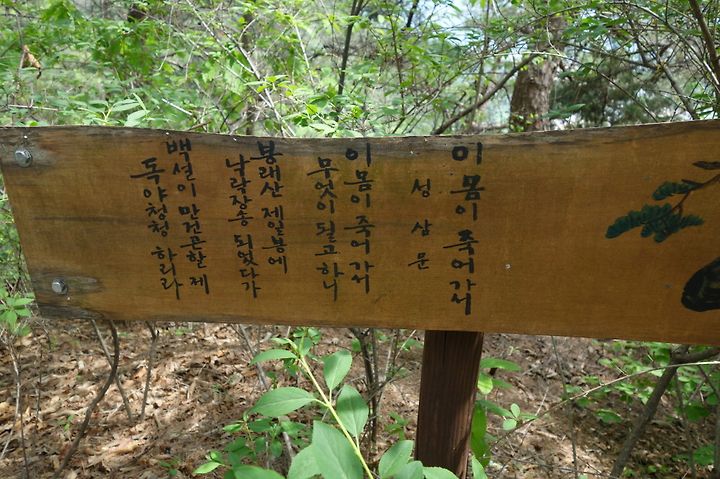 이 몸이 죽어 가서
성삼문
이 몸이 죽어 가서
무엇이 될고 하니
봉래산 제일봉에
낙락장송 되었다가
백설이 만건곤할 제
독야청청 하리라